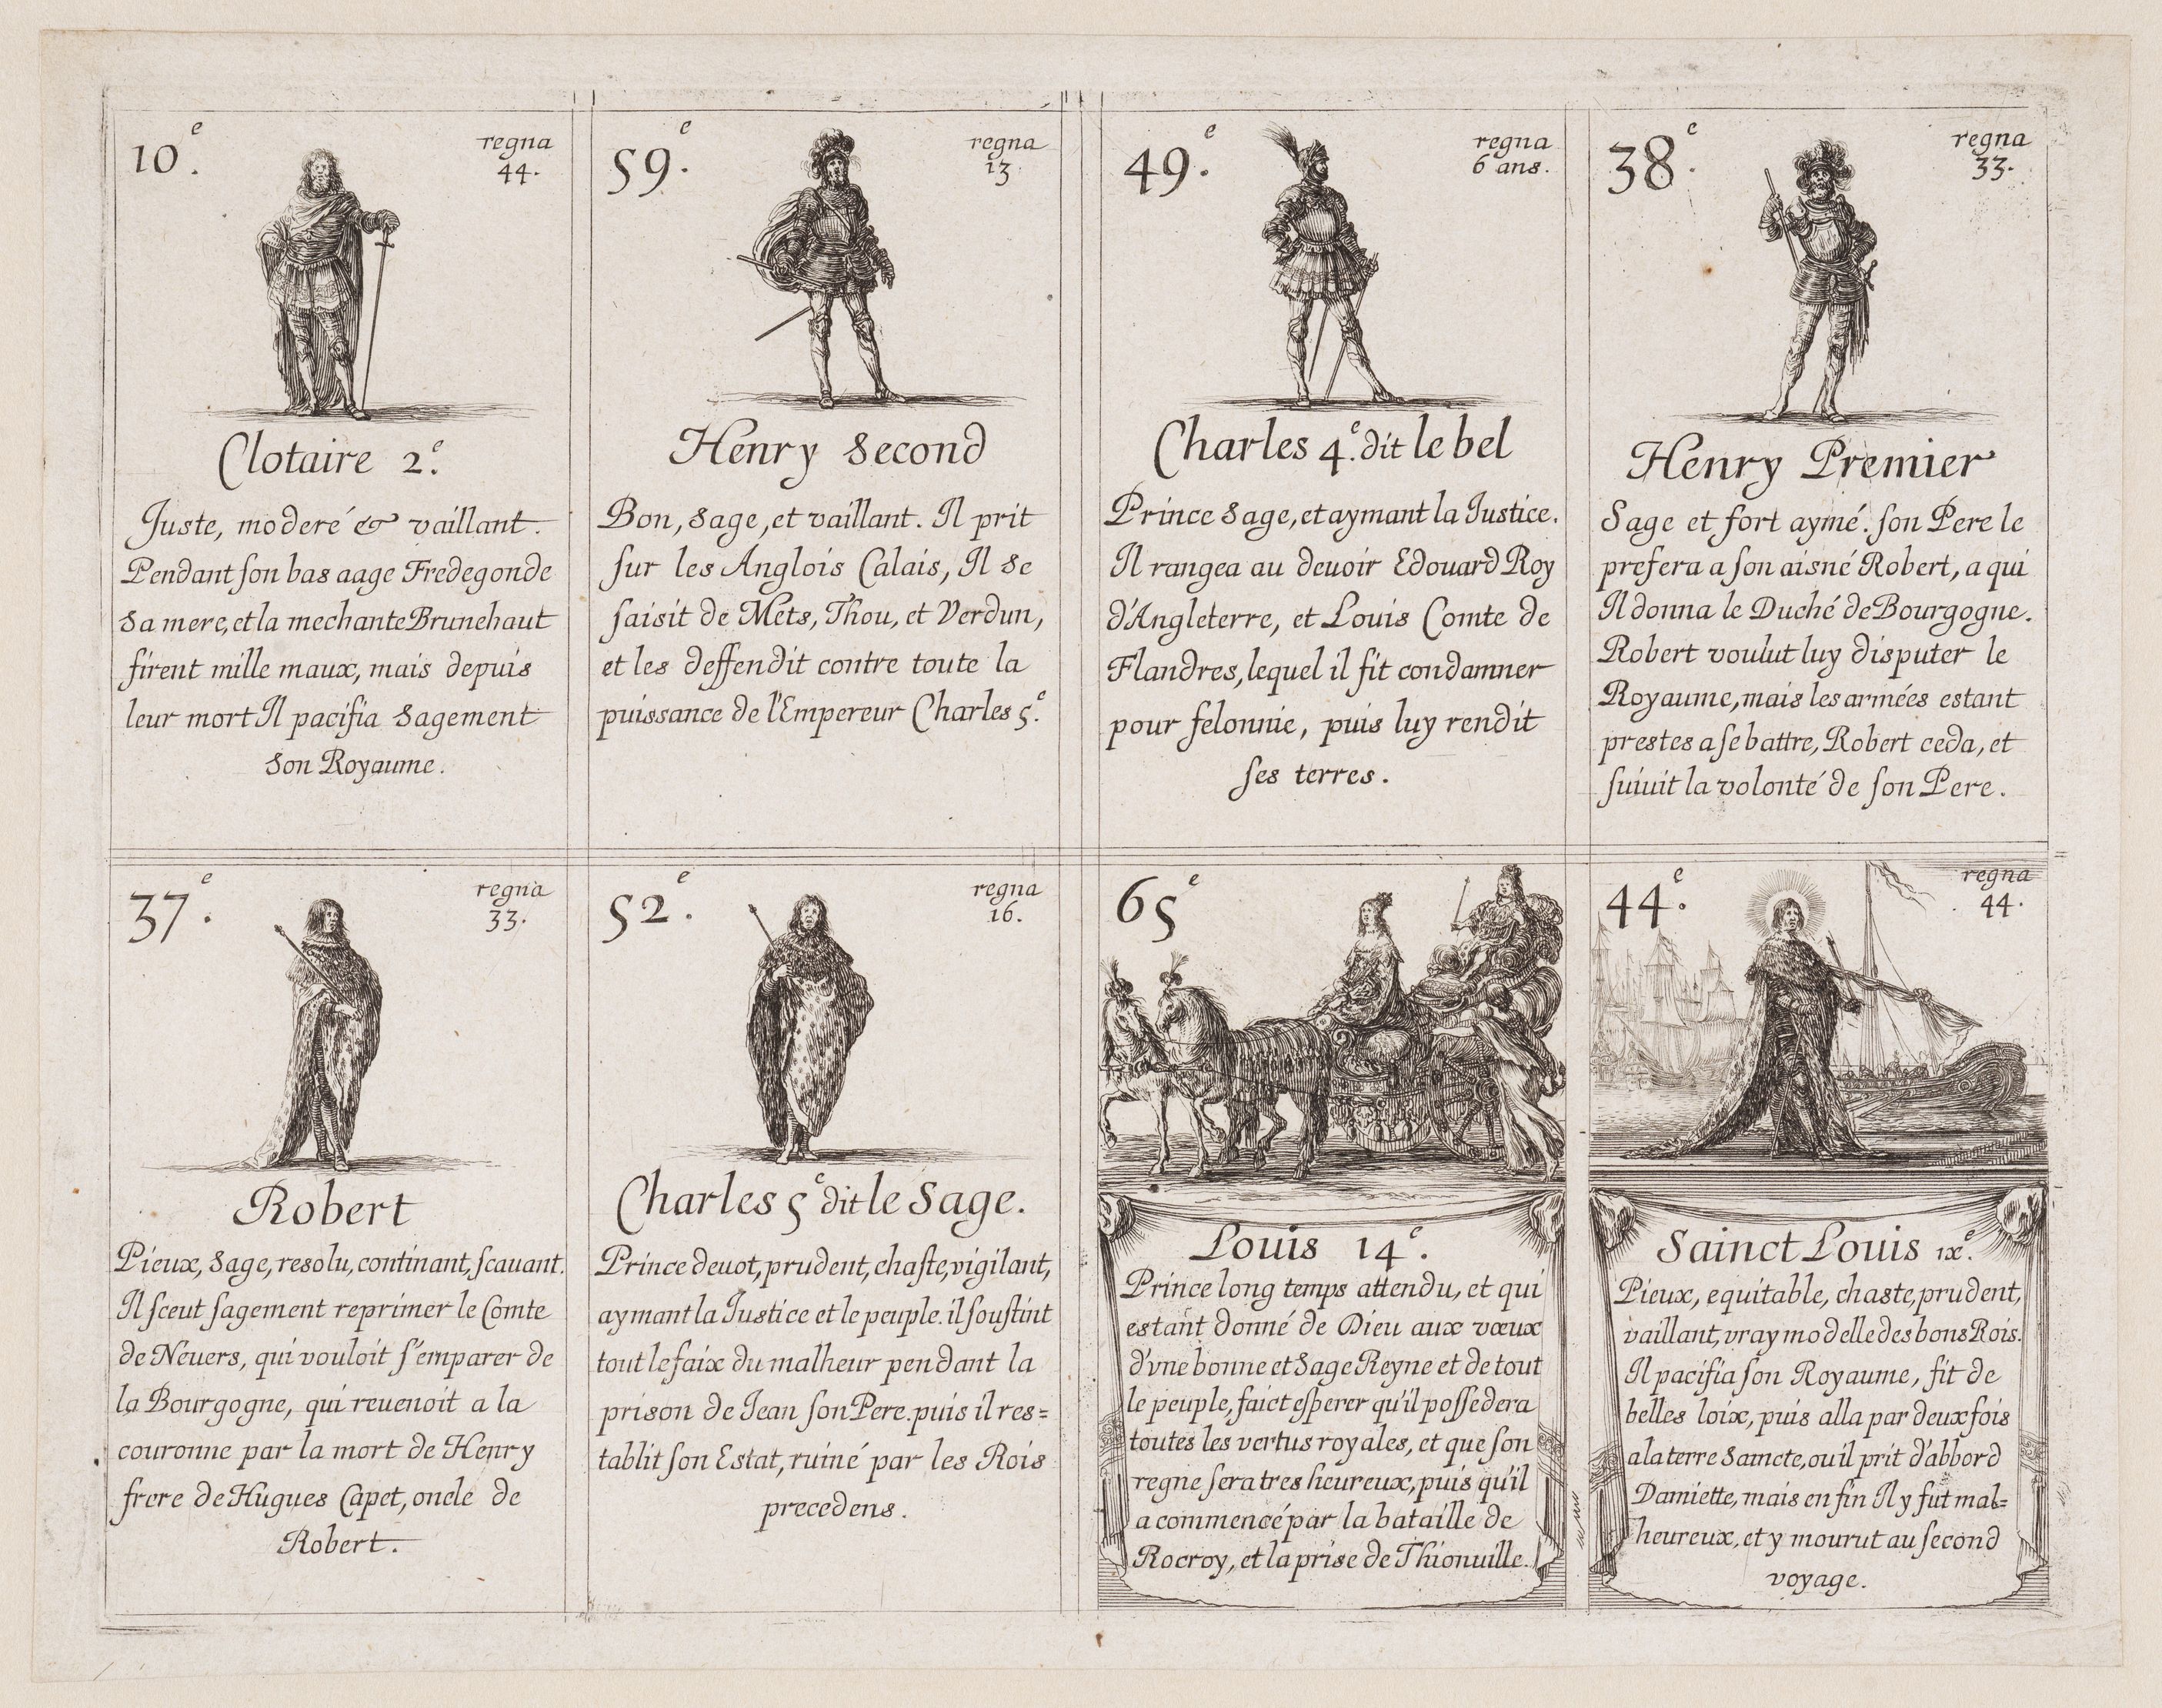 10.e
regna
44.
Clotaire 2.e
Juste, moderé & vaillant.
Pendant son bas aage Fredegonde
sa mere, et la mechante Brunehaut
firent mille maux, mais depuis
leur mort Il pacifia sagement
son Royaume.
59.e
regna
13
Henry second
Bon, sage, et vaillant. Il prit
sur les Anglois Calais, Il se
saisit de Mets, Thou, et Verdun,
et les deffendit contre toute la
puissance de l'Empereur Charles 5.e
49.e
regna
6 ans.
Charles 4.e dit le bel
Prince sage, et aymant la Justice.
Il rangea au devoir Edouard Roy
d'Angleterre, et Louis Comte de
Flandres, lequel il fit condamner
pour felonnie, puis luy rendit
ses terres.
38.e
regna
33.
Henry Premier
Sage et fort aymé. son Pere le
prefera a son aisné Robert, a qui
Il donna le Duché de Bourgogne.
Robert voulut luy disputer le
Royaume, mais les armées estant
prestes a se battre, Robert ceda, et
suiuit la volonté de son Pere.
37.e
regna
33.
Robert
Pieux, sage, resolu, continant, scauant.
Il sceut sagement reprimer le Comte
de Neuers, qui vouloit s'emparer de
la Bourgogne, qui reuenoit a la
couronne par la mort de Henry
frere de Hugues Capet, oncle de
Robert.
52.e
regna
16.
Charles 5.e dit le sage.
Prince deuot, prudent, chaste, vigilant,
aymant la Justice et le peuple. il soustint
tout le faix du malheur pendant la
prison de Jean son Pere. puis il res=
tablit son Estat, ruiné par les Rois
precedens.
65e
Louis 14e.
Prince long temps attendu, et qui
estant donné de Dieu aux vœux
d'vne bonne et sage Reyne et de tout
le peuple, faict esperer qu'il possedera
toutes les vertus royales, et que son
regne sera tres heureux, puis qu'il
a commencé par la bataille de
Rocroy, et la prise de Thionuille.
44.e
regna
44.
Sainct Louis ix.e
Pieux, equitable, chaste, prudent,
vaillant, vray modelle des bons Rois.
Il pacifia son Royaume, fit de
belles loix, puis alla par deux fois
a la terre Saincte, ou il prit d'abbord
Damiette, mais en fin Il y fut mal=
heureux, et y mourut au second
voyage.